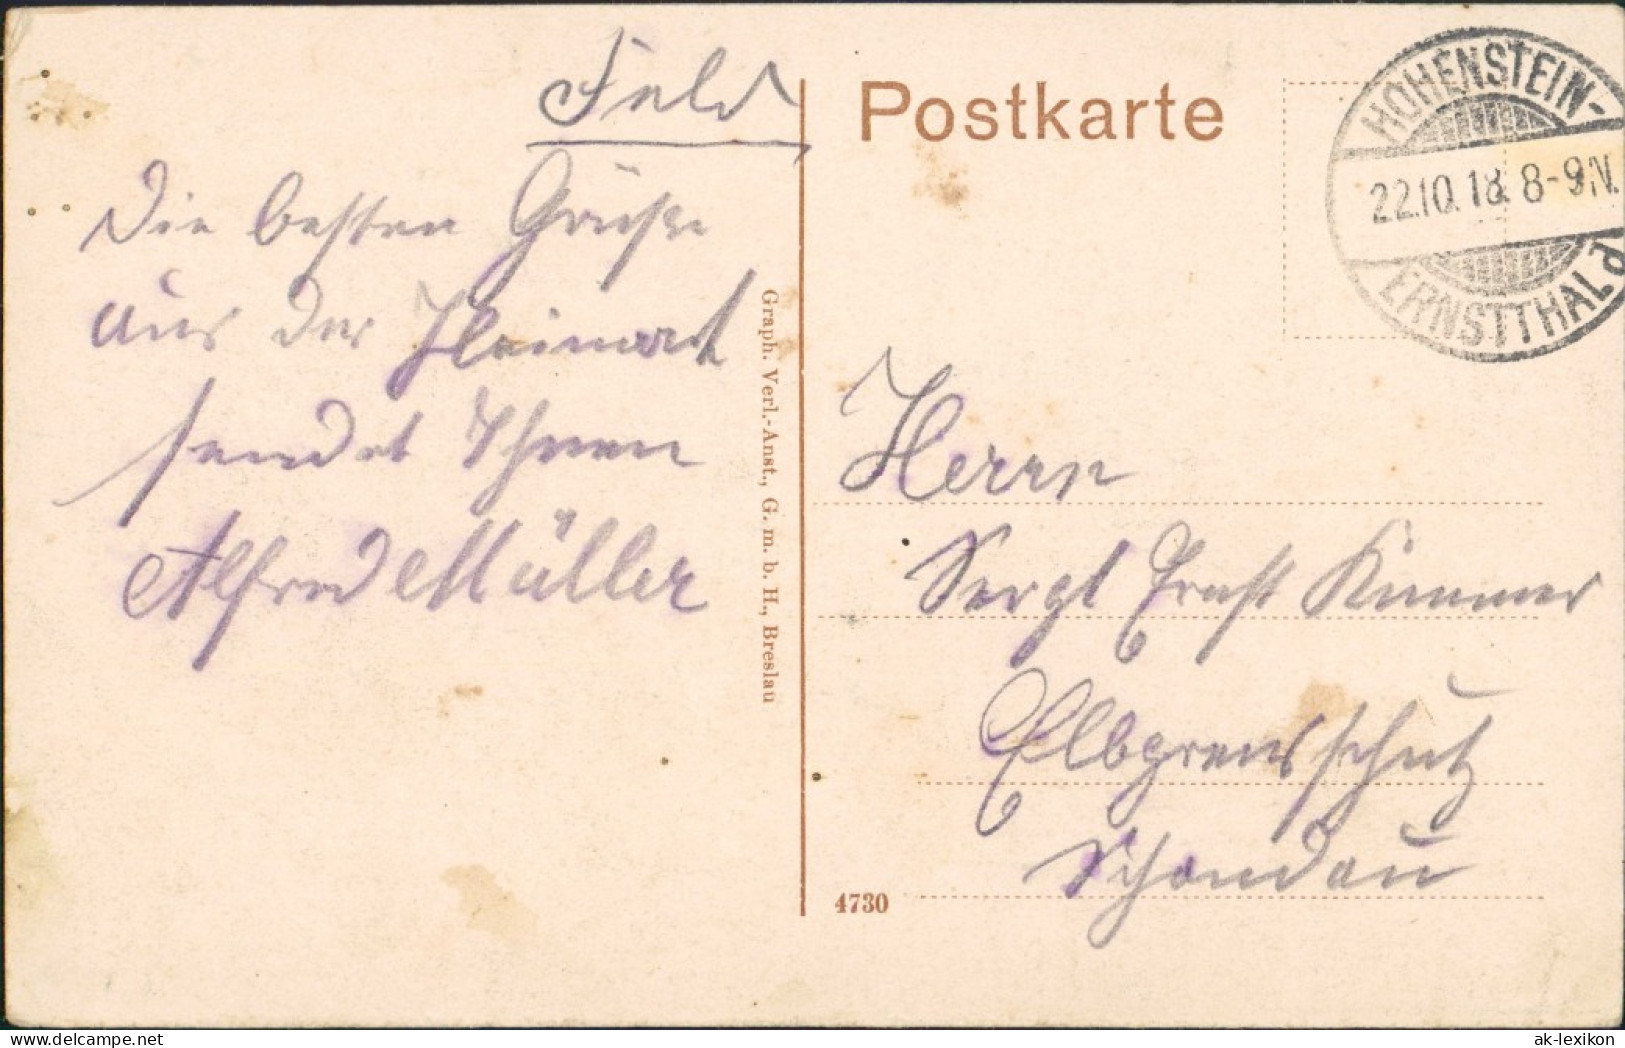 Feld
Postkarte
HOHENSTEIN-
22.10.18. 8-9N.
ERNSTTHAL
Die besten Grüße
aus der Heimat
sendet Ihnen
Alfred Müller
Graph. Verl.-Anst., G. m. b. H., Breslau
Herrn
Sergt Ernst Kümmer
Elbgrensschutz
Schandau
4730
delcampe.net
ak-lexikon